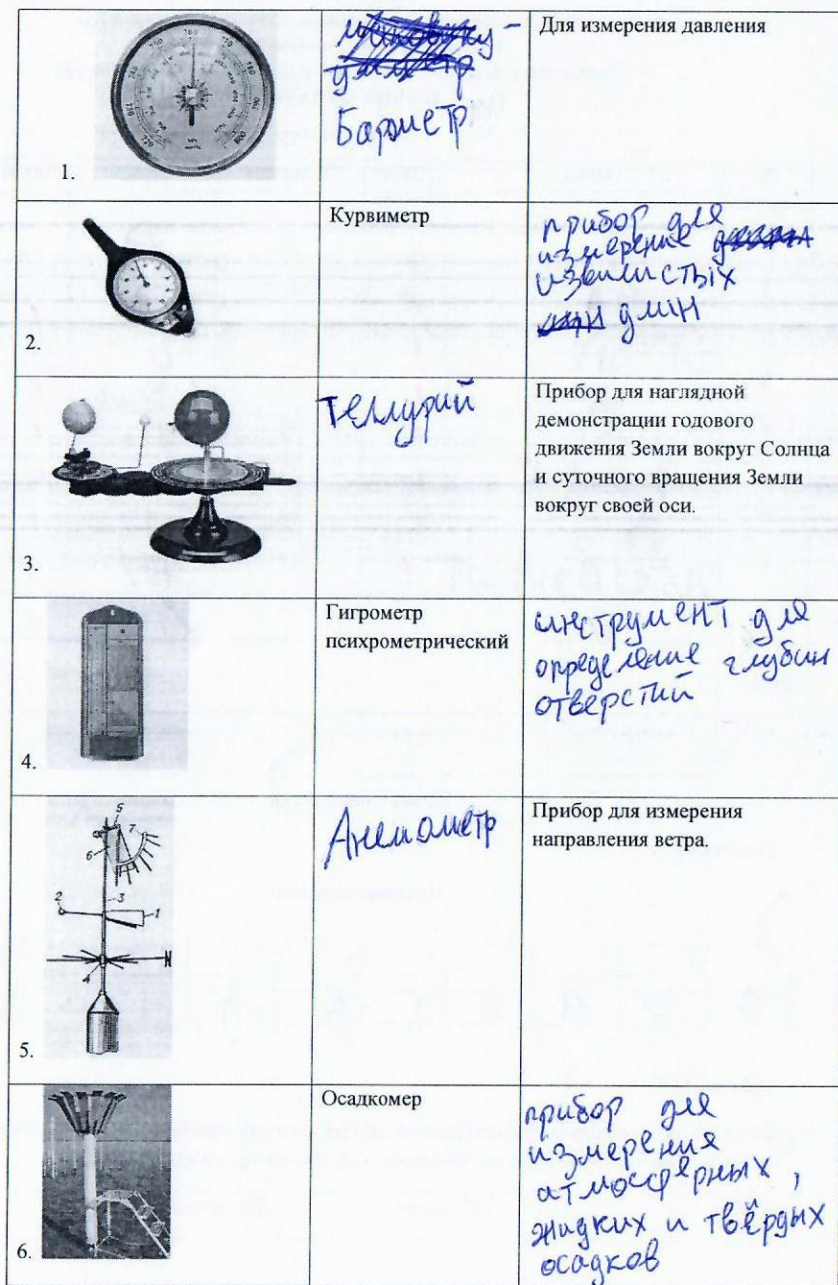 Барометр
Для измерения давления
1.
Курвиметр
прибор для
измерение
извилистых
длин
2.
Теллурий
Прибор для наглядной
демонстрации годового
движения Земли вокруг Солнца
и суточного вращения Земли
вокруг своей оси.
3.
Гигрометр
психрометрический
инструмент для
определение глубин
отверстий
4.
Анемометр
Прибор для измерения
направления ветра.
5
6
7
2
3
1
4
N
5.
Осадкомер
прибор для
измерения
атмосферных,
жидких и твёрдых
осадков
6.